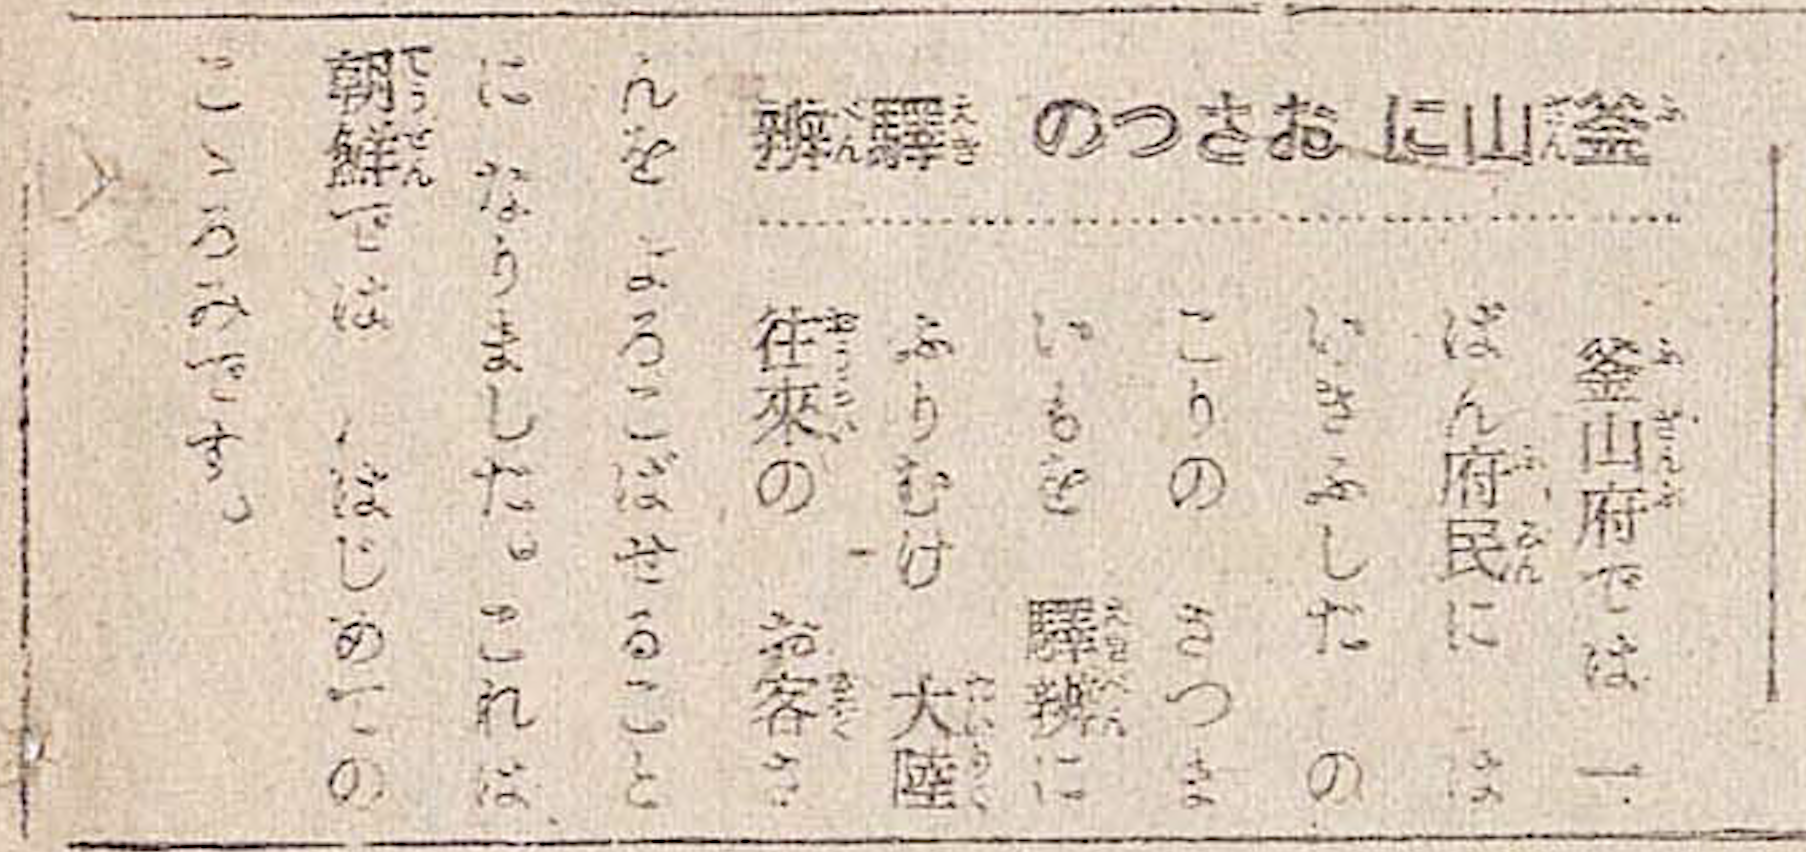 釜山に おさつの 驛辨
釜山府では 一
ばん府民に は
いきふした の
こりの さつま
いもを 驛辨に
ふりむけ 大陸
往來の お客さ
んを よろこばせること
に なりました。これは
朝鮮では はじめての
こゝろみです。